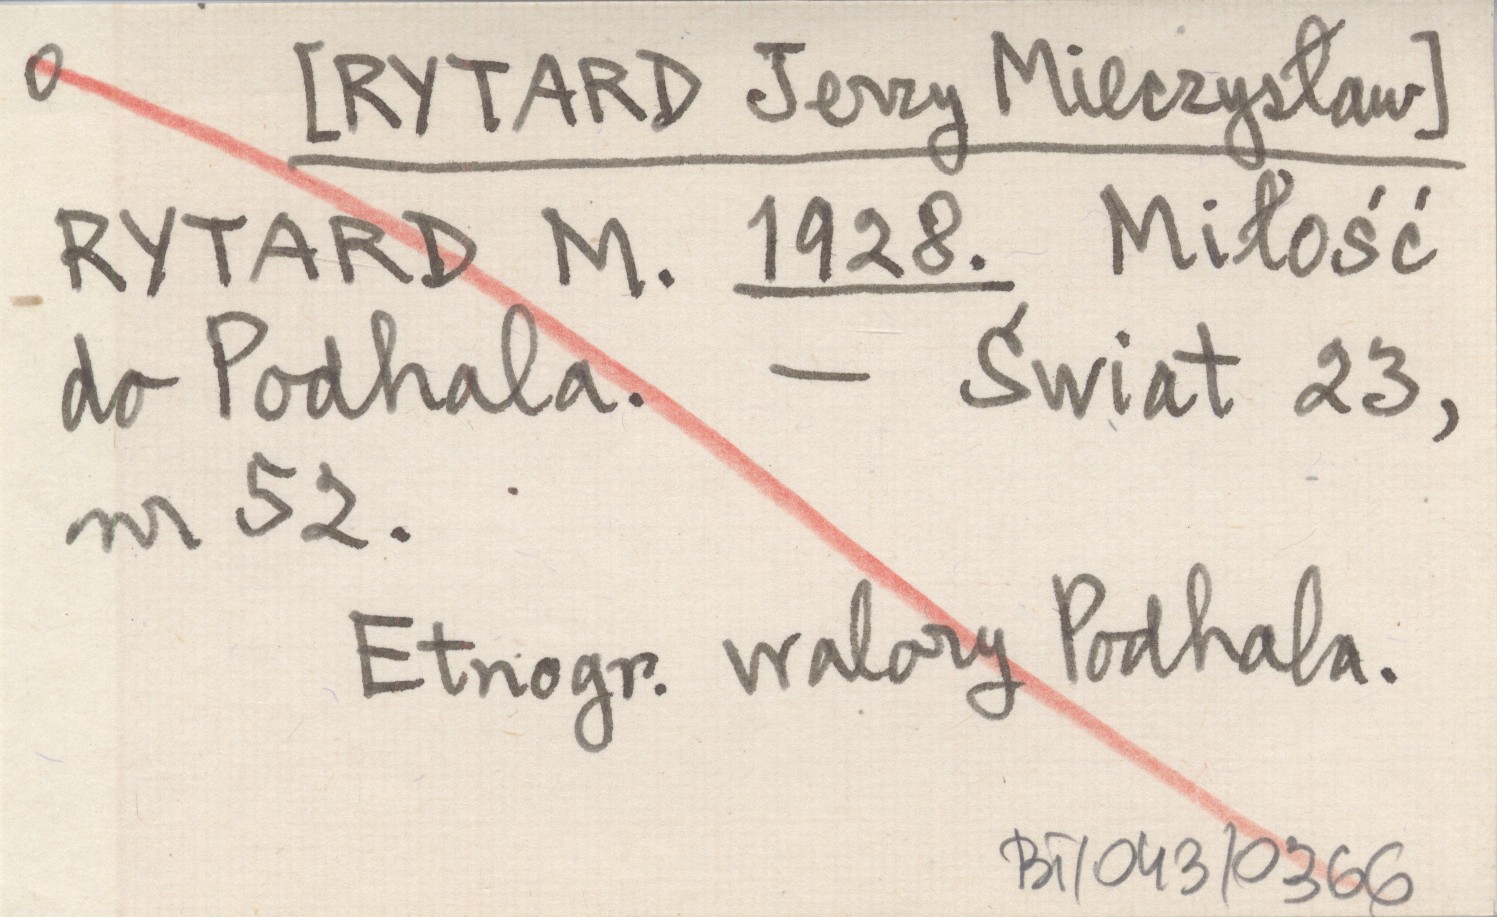 0 [RYTARD Jerzy Mieczysław]
RYTARD M. 1928. Miłość
do Podhala. — Świat 23,
nr 52.
Etnogr. walory Podhala.
BT/043/0366